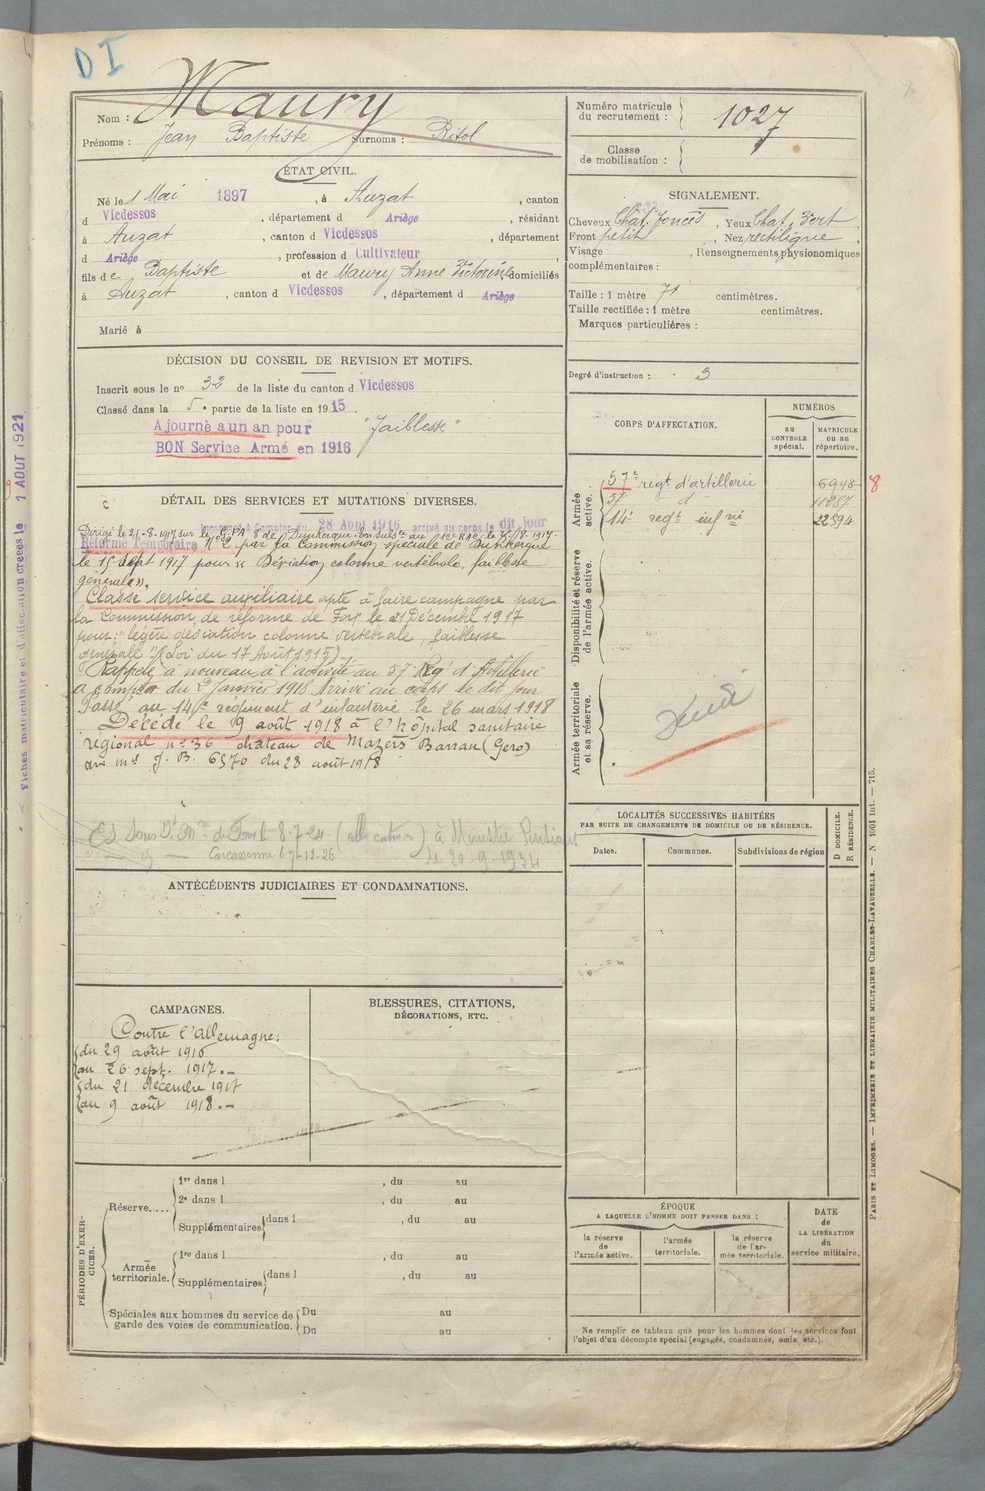 D I
Nom : Maury
Prénoms : Jean Baptiste Surnoms : Ritol
Numéro matricule du recrutement : 1027
Classe de mobilisation :
ÉTAT CIVIL.
Né le 1 Mai 1897, à Auzat, canton
d Vicdessos, département d Ariège, résidant
à Auzat, canton d Vicdessos, département
d Ariège, profession d Cultivateur,
fils de Baptiste et de Maury Anne Victorine domiciliés
à Auzat, canton d Vicdessos, département d Ariège
Marié à
SIGNALEMENT.
Cheveux Chat. foncés, Yeux Chat. Vert
Front petit, Nez rectiligne,
Visage , Renseignements physionomiques
complémentaires :
Taille : 1 mètre 71 centimètres.
Taille rectifiée : 1 mètre centimètres.
Marques particulières :
Degré d'instruction : 3
DÉCISION DU CONSEIL DE REVISION ET MOTIFS.
Inscrit sous le no 32 de la liste du canton d Vicdessos
Classé dans la 5e partie de la liste en 1915
Ajourné a un an pour "faiblesse"
BON Service Armé en 1916
CORPS D'AFFECTATION.
NUMÉROS
AU CONTROLE spécial.
MATRICULE OU AU répertoire.
Armée active.
57e régt d'artillerie 6948 8
57 d° 11287
14e regt infrie 22594
Disponibilité et réserve de l'armée active.
Armée territoriale et sa réserve.
DÉTAIL DES SERVICES ET MUTATIONS DIVERSES.
Incorporé à Compter du 28 Aout 1916 arrivé au corps le dit jour
Dirigé le 21-8-1917 sur le
Réforme Temporaire No 2 par la Commission spéciale de Dunkerque
le 15 sept 1917 pour "Déviation colonne vertébrale, faiblesse
générale".
Classé service auxiliaire apte à faire campagne par
la Commission de réforme de Foix le 21 Décembre 1917
pour : "légère déviation colonne vertébrale, faiblesse
générale" (Loi du 17 Août 1915)
Rappelé à nouveau à l'activité au 57e Régt d'Artillerie
à compter du 2 janvier 1918 Arrivé au corps le dit jour
Passé au 14e régiment d'infanterie le 26 mars 1918
Décédé le 9 août 1918 à l'hôpital sanitaire
régional no 36 château de Mazères Barran (Gers)
avis ml J. B. 6570 du 28 août 1918
8-7-24 (allocation) à Ministre Pensions
Carcassonne 6 7-12-26 le 20-9-1934
LOCALITÉS SUCCESSIVES HABITÉES
PAR SUITE DE CHANGEMENTS DE DOMICILE OU DE RÉSIDENCE.
Dates. Communes. Subdivisions de région
D DOMICILE. R RÉSIDENCE.
ANTÉCÉDENTS JUDICIAIRES ET CONDAMNATIONS.
CAMPAGNES.
Contre l'Allemagne :
du 29 août 1916
au 26 sept. 1917.-
du 21 décembre 1917
au 9 août 1918.-
BLESSURES, CITATIONS,
DÉCORATIONS, ETC.
PÉRIODES D'EXERCICES.
Réserve.....
1re dans l , du au
2e dans l , du au
Supplémentaires dans l , du au
Armée territoriale.
1re dans l , du au
Supplémentaires dans l , du au
Spéciales aux hommes du service de garde des voies de communication.
Du au
Du au
ÉPOQUE
A LAQUELLE L'HOMME DOIT PASSER DANS :
la réserve de l'armée active.
l'armée territoriale.
la réserve de l'armée territoriale.
DATE de LA LIBÉRATION du service militaire.
Ne remplir ce tableau que pour les hommes dont les services font
l'objet d'un décompte spécial (engagés, condamnés, omis, etc.).
PARIS ET LIMOGES. — IMPRIMERIE ET LIBRAIRIE MILITAIRES CHARLES-LAVAUZELLE. — N° 1601 int. — 715.
Fiches matriculaire et d'affectation créées le 1 AOUT 1921